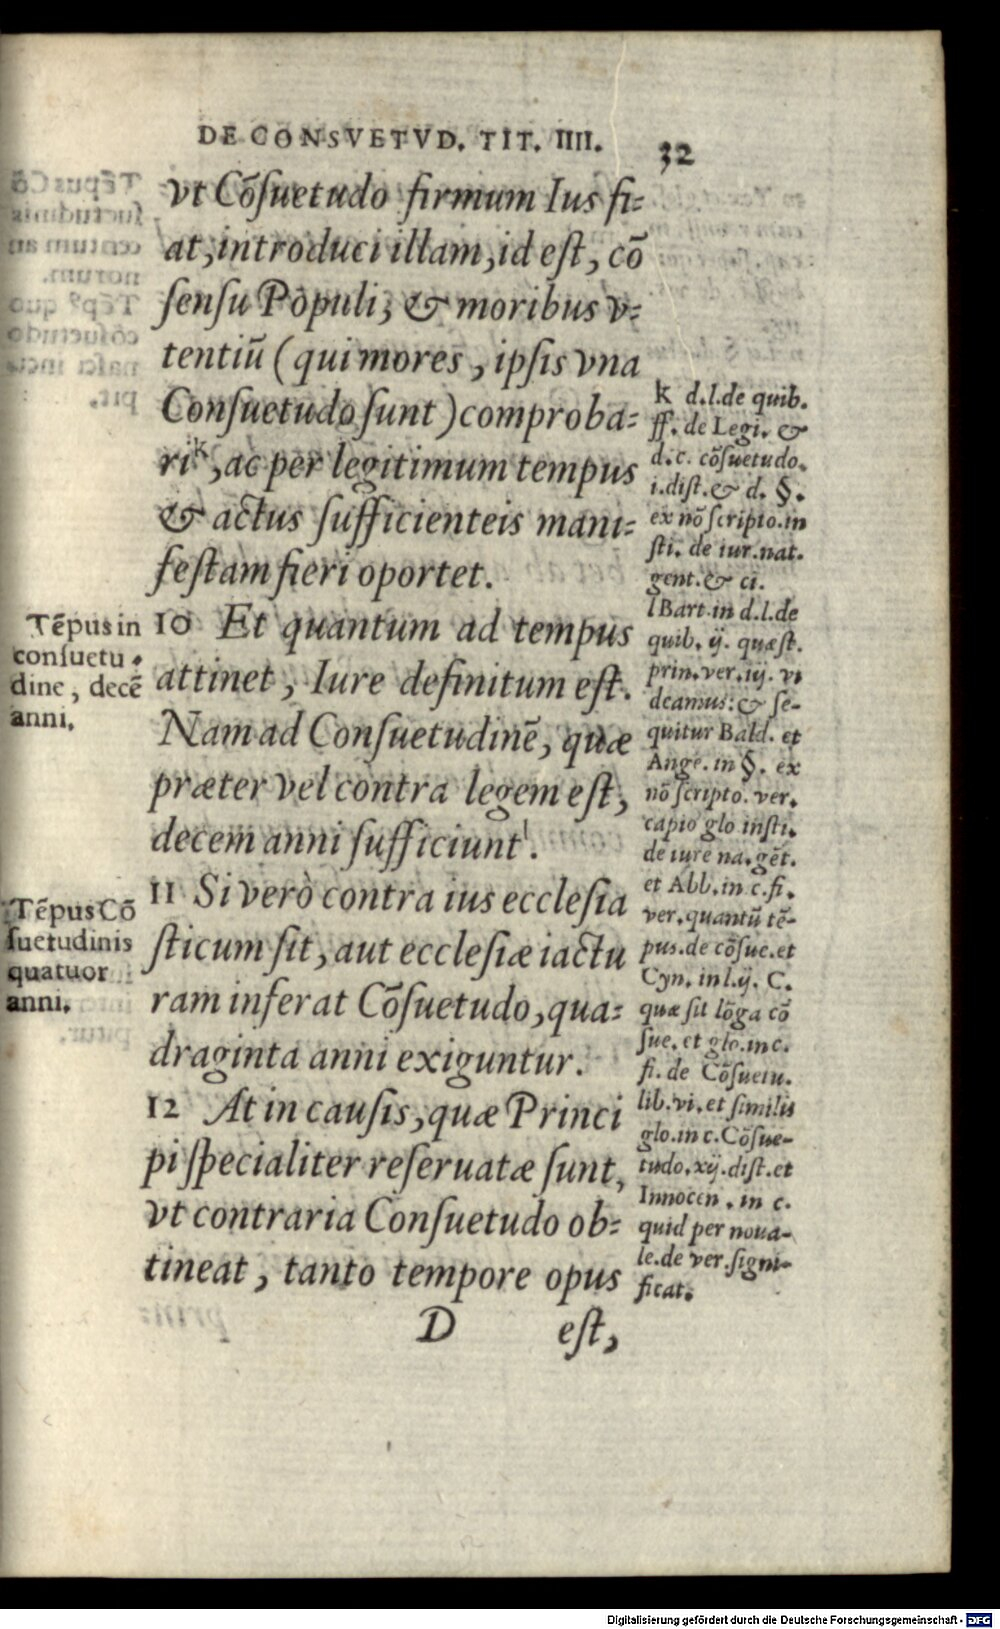 DE CONSVETVD. TIT. IIII. 32
vt Cõſuetudo firmum Ius fi-
at, introduci illam, id eſt, cõ
ſenſu Populi, & moribus v-
tentiũ (qui mores, ipſis vna
Conſuetudo ſunt) comproba-
ri k, ac per legitimum tempus
& actus ſufficienteis mani-
feſtam fieri oportet.
10 Et quantum ad tempus
attinet, Iure definitum eſt.
Nam ad Conſuetudinẽ, quæ
præter vel contra legem eſt,
decem anni ſufficiunt l.
11 Si verò contra ius eccleſia
ſticum ſit, aut eccleſiæ iactu
ram inferat Cõſuetudo, qua-
draginta anni exiguntur.
12 At in cauſis, quæ Princi
pi ſpecialiter reſeruatæ ſunt,
vt contraria Conſuetudo ob-
tineat, tanto tempore opus
D eſt,
Tẽpus in
conſuetu-
dine, decẽ
anni.
Tẽpus Cõ
ſuetudinis
quatuor
anni.
k d.l.de quib.
ff. de Legi. &
d.c. cõſuetudo.
i.diſt. & d. §.
ex nõ ſcripto.in
ſti. de iur.nat.
gent. & ci.
l Bart.in d.l.de
quib. ij. quæſt.
prin.ver.iij. vi
deamus: & ſe-
quitur Bald. et
Ange. in §. ex
nõ ſcripto. ver.
capio glo inſti.
de iure na.gẽt.
et Abb.in c.fi.
ver.quantũ tẽ-
pus.de cõſue.et
Cyn. in l.ij. C.
quæ ſit lõga cõ
ſue. et glo.in c.
fi. de Cõſuetu.
lib.vi.et ſimilis
glo.in c.Cõſue-
tudo.xij.diſt.et
Innocen. in c.
quid per noua-
le.de ver.ſigni-
ficat.
Digitalisierung gefördert durch die Deutsche Forschungsgemeinschaft - DFG